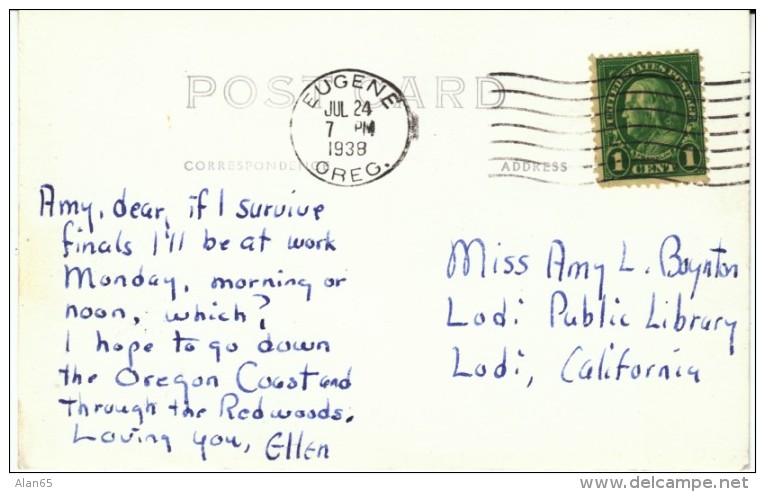 POST CARD
EUGENE
JUL 24
7 PM
1938
OREG.
CORRESPONDENCE
ADDRESS
UNITED STATES POSTAGE
1 CENT 1
Amy, dear, if I survive
finals I'll be at work
Monday, morning or
noon, which?
I hope to go down
the Oregon Coast and
through the Redwoods.
Loving you, Ellen
Miss Amy L. Boynton
Lodi Public Library
Lodi, California
Alan65
www.delcampe.net